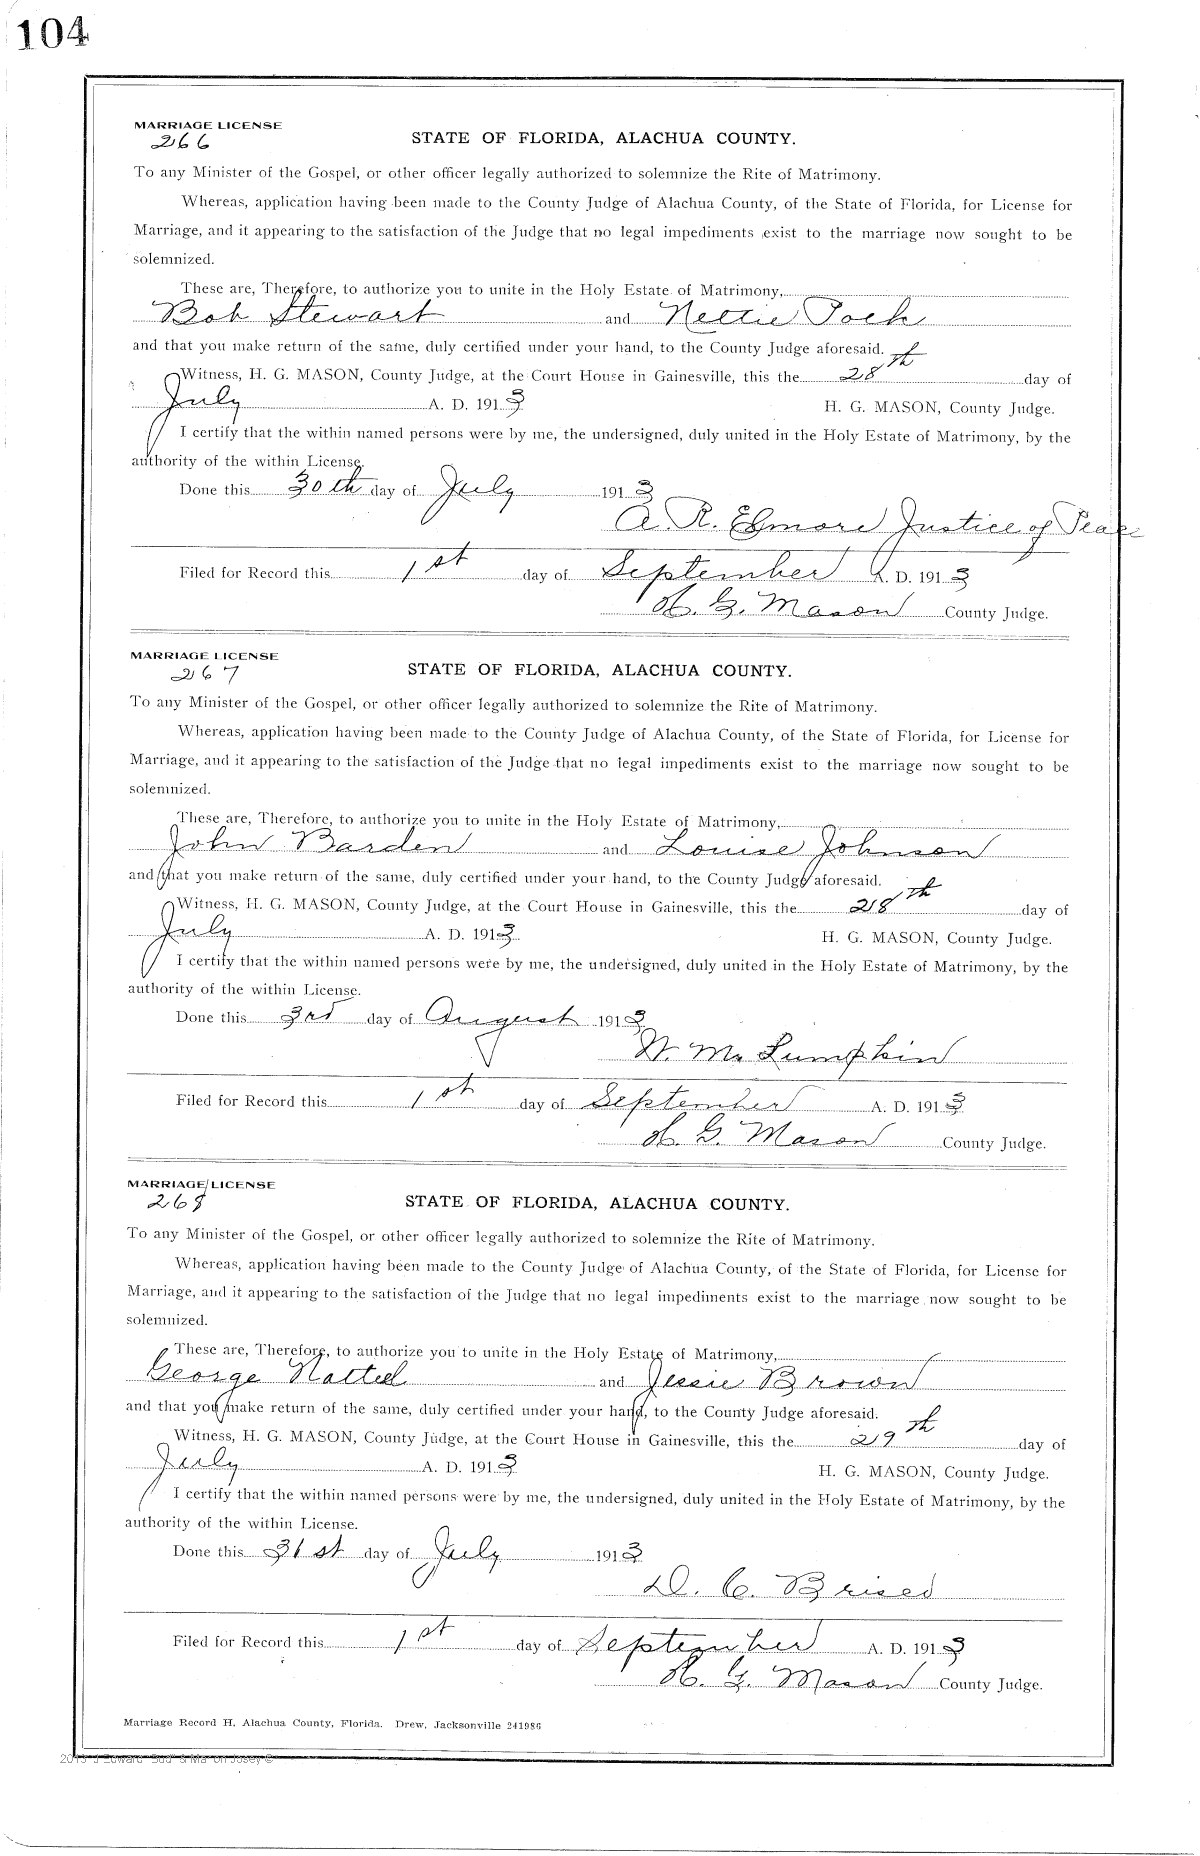 104
MARRIAGE LICENSE
266
STATE OF FLORIDA, ALACHUA COUNTY.
To any Minister of the Gospel, or other officer legally authorized to solemnize the Rite of Matrimony.
Whereas, application having been made to the County Judge of Alachua County, of the State of Florida, for License for
Marriage, and it appearing to the satisfaction of the Judge that no legal impediments exist to the marriage now sought to be
solemnized.
These are, Therefore, to authorize you to unite in the Holy Estate of Matrimony,
Bob Stewart and Nettie Pock
and that you make return of the same, duly certified under your hand, to the County Judge aforesaid.
Witness, H. G. MASON, County Judge, at the Court House in Gainesville, this the 28th day of
July A. D. 1913 H. G. MASON, County Judge.
I certify that the within named persons were by me, the undersigned, duly united in the Holy Estate of Matrimony, by the
authority of the within License.
Done this 30th day of July 1913
A. R. Elmore Justice of Peace
Filed for Record this 1st day of September A. D. 1913
H. G. Mason County Judge.
MARRIAGE LICENSE
267
STATE OF FLORIDA, ALACHUA COUNTY.
To any Minister of the Gospel, or other officer legally authorized to solemnize the Rite of Matrimony.
Whereas, application having been made to the County Judge of Alachua County, of the State of Florida, for License for
Marriage, and it appearing to the satisfaction of the Judge that no legal impediments exist to the marriage now sought to be
solemnized.
These are, Therefore, to authorize you to unite in the Holy Estate of Matrimony,
John Barden and Louise Johnson
and that you make return of the same, duly certified under your hand, to the County Judge aforesaid.
Witness, H. G. MASON, County Judge, at the Court House in Gainesville, this the 28th day of
July A. D. 1913 H. G. MASON, County Judge.
I certify that the within named persons were by me, the undersigned, duly united in the Holy Estate of Matrimony, by the
authority of the within License.
Done this 3rd day of August 1913
W. M. Lumpkin
Filed for Record this 1st day of September A. D. 1913
H. G. Mason County Judge.
MARRIAGE LICENSE
268
STATE OF FLORIDA, ALACHUA COUNTY.
To any Minister of the Gospel, or other officer legally authorized to solemnize the Rite of Matrimony.
Whereas, application having been made to the County Judge of Alachua County, of the State of Florida, for License for
Marriage, and it appearing to the satisfaction of the Judge that no legal impediments exist to the marriage now sought to be
solemnized.
These are, Therefore, to authorize you to unite in the Holy Estate of Matrimony,
George and Jessie Brown
and that you make return of the same, duly certified under your hand, to the County Judge aforesaid.
Witness, H. G. MASON, County Judge, at the Court House in Gainesville, this the 29th day of
July A. D. 1913 H. G. MASON, County Judge.
I certify that the within named persons were by me, the undersigned, duly united in the Holy Estate of Matrimony, by the
authority of the within License.
Done this 31st day of July 1913
D. C.
Filed for Record this 1st day of September A. D. 1913
H. G. Mason County Judge.
Marriage Record H, Alachua County, Florida. Drew, Jacksonville 241986